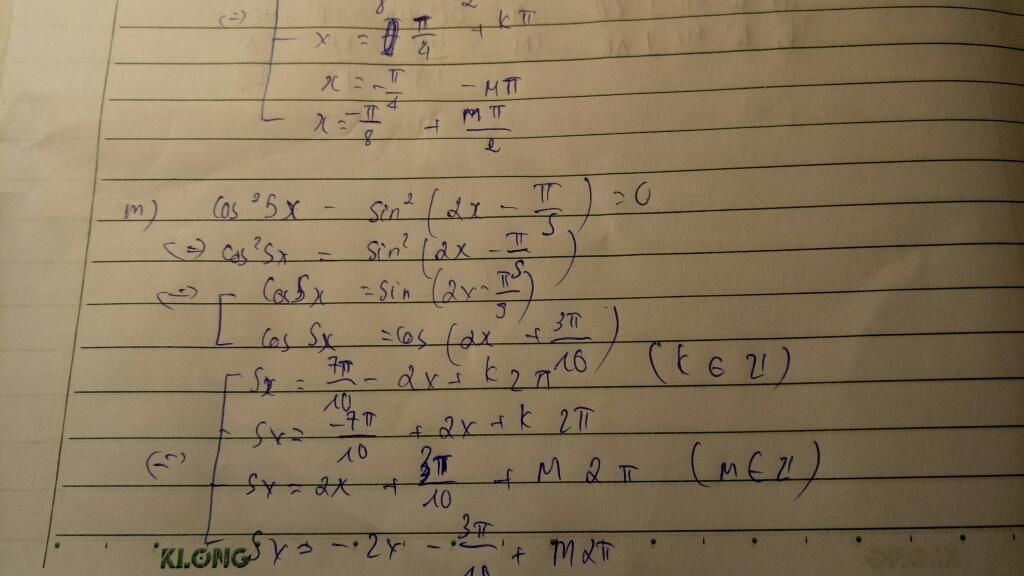 (=)
x = π/4 + kπ
x = -π/4 - Mπ
x = -π/8 + mπ/2
m) cos²5x - sin²(2x - π/5) = 0
(=) cos²5x = sin²(2x - π/5)
(=) [ Cos5x = sin(2x - π/5)
cos 5x = cos(2x + 3π/10)
5x = 7π/10 - 2x + k2π (k ∈ Z)
5x = -7π/10 + 2x + k2π
(=) 5x = 2x + 3π/10 + M2π (M ∈ Z)
5x = -2x - 3π/10 + M2π
KLONG
KLONG